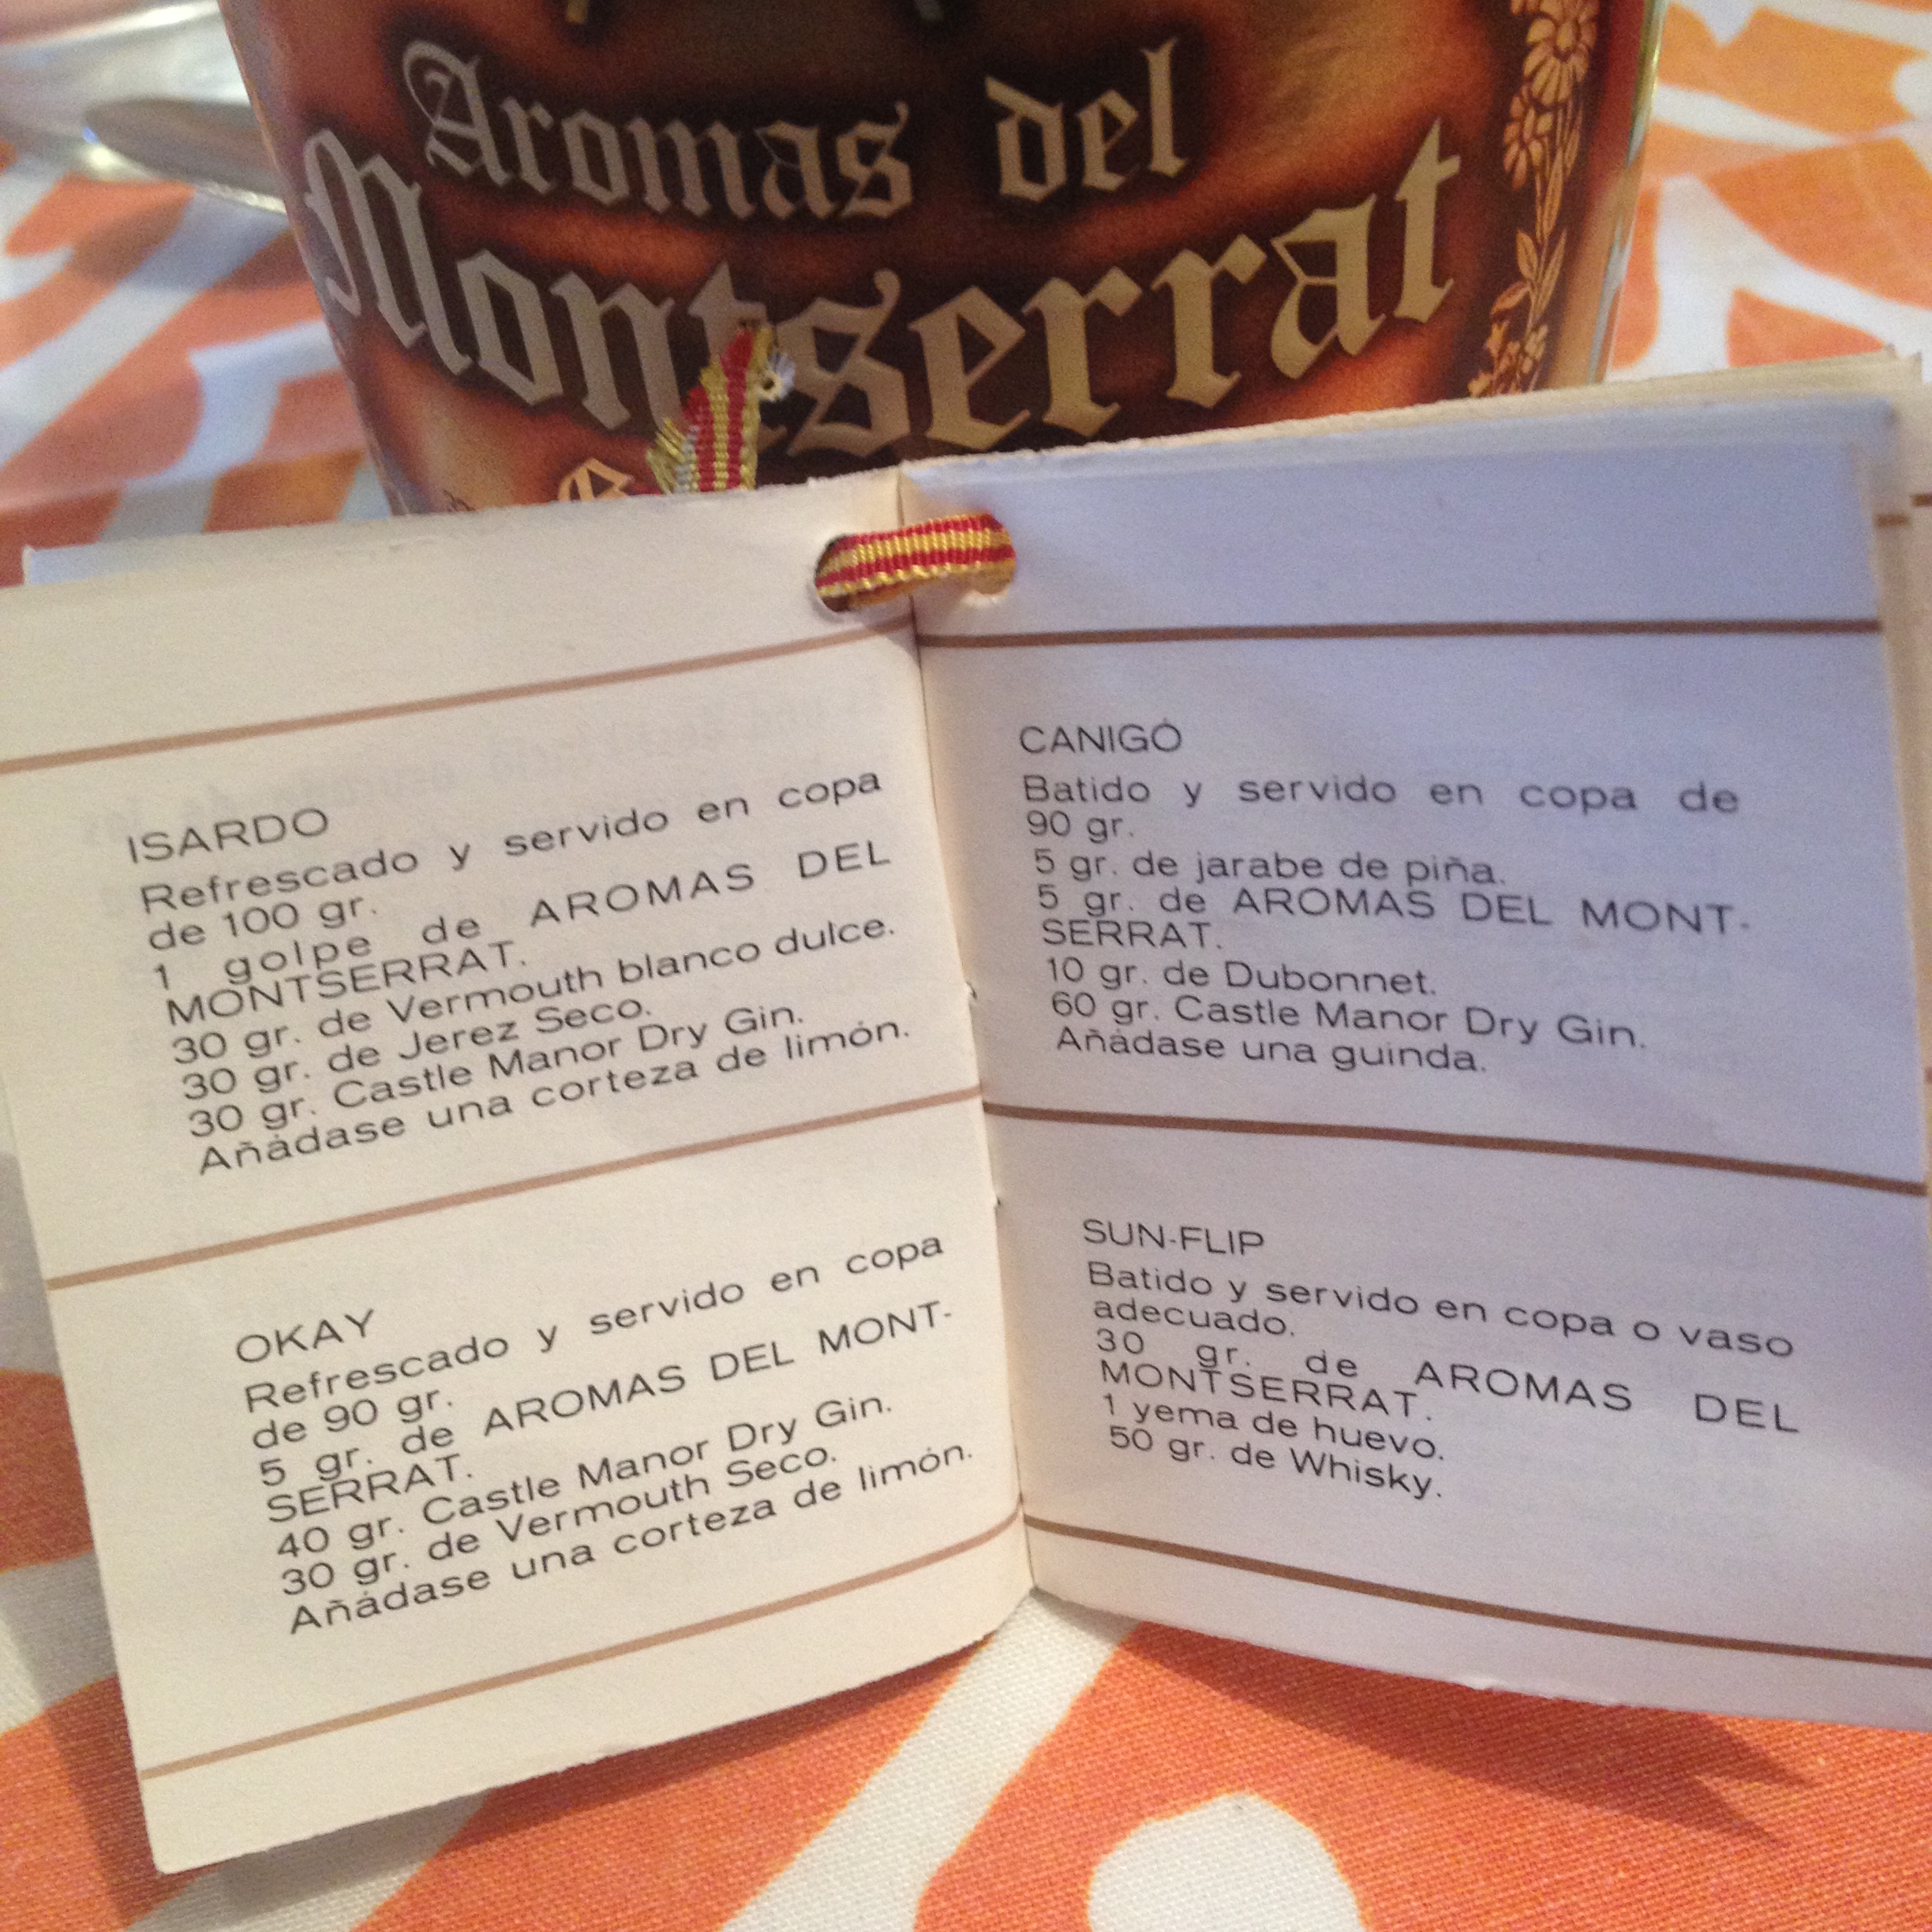 Aromas del
Montserrat
ISARDO
Refrescado y servido en copa
de 100 gr.
1 golpe de AROMAS DEL
MONTSERRAT.
30 gr. de Vermouth blanco dulce.
30 gr. de Jerez Seco.
30 gr. Castle Manor Dry Gin.
Añádase una corteza de limón.
OKAY
Refrescado y servido en copa
de 90 gr.
5 gr. de AROMAS DEL MONT-
SERRAT.
40 gr. Castle Manor Dry Gin.
30 gr. de Vermouth Seco.
Añádase una corteza de limón.
CANIGÓ
Batido y servido en copa de
90 gr.
5 gr. de jarabe de piña.
5 gr. de AROMAS DEL MONT-
SERRAT.
10 gr. de Dubonnet.
60 gr. Castle Manor Dry Gin.
Añádase una guinda.
SUN-FLIP
Batido y servido en copa o vaso
adecuado.
30 gr. de AROMAS DEL
MONTSERRAT.
1 yema de huevo.
50 gr. de Whisky.